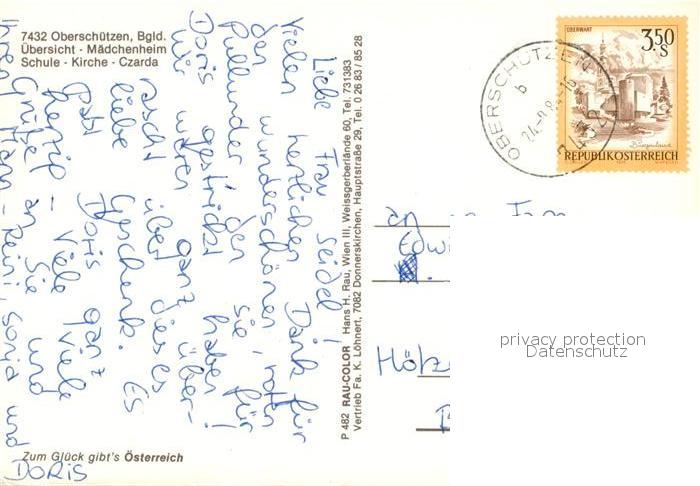 7432 Oberschützen, Bgld.
Übersicht - Mädchenheim
Schule - Kirche - Czarda
OBERWART
3.50
S
Burgenland
REPUBLIK ÖSTERREICH
OBERSCHÜTZEN
b
7432
Liebe Frau Seidel!
Vielen herzlichen Dank für
den wunderschönen, roten
Pullunder den Sie für
Doris gestrickt haben!
Wir waren ganz über-
rascht über dieses
liebe Geschenk. Es
paßt Doris ganz
- Viele
Grüße an Sie und
Ihren Mann - Reini, Sonja und
DORIS
P 482 RAU-COLOR Hans H. Rau, Wien III, Weissgerberlände 60, Tel. 731383
Vertrieb Fa. K. Löhnert, 7082 Donnerskirchen, Hauptstraße 29, Tel. 0 26 83 / 85 28
An
Edwi
Hölz
privacy protection
Datenschutz
Zum Glück gibt's Österreich